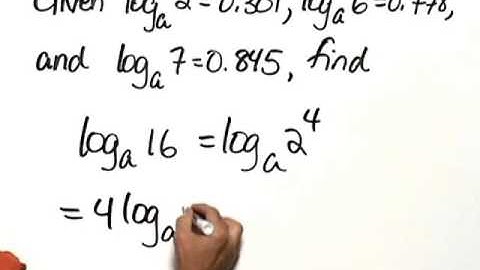 Given logₐ2=0.301, logₐ6=0.778,
and logₐ7=0.845, find
logₐ16 = logₐ2⁴
= 4logₐ